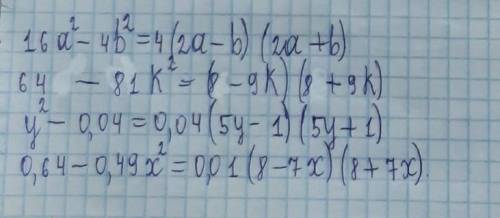 16a² - 4b² = 4(2a - b)(2a + b)
64 - 81k² = (8 - 9k)(8 + 9k)
y² - 0,04 = 0,04(5y - 1)(5y + 1)
0,64 - 0,49x² = 0,01(8 - 7x)(8 + 7x)